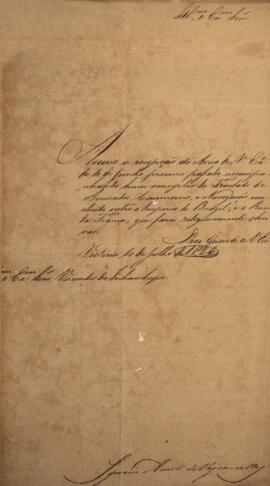 Ill.mo e Ex.mo Snr.
Accuso a recepção do Aviso de V. Ex.a
de 10 de Junho proximo passado, acompa-
nhando hum exemplar do Tractado de
Amizade, Commercio, e Navegação con-
cluido entre o Imperio do Brazil, e o Rei
da França, que farei religiosamente obser-
var.
Deos Guarde a V. Ex.a
Victoria 10 de Julho de 1826
Ill.mo e Ex.mo Snr. Visconde de Inhambupe
Ignacio Accioli de Vasconcellos